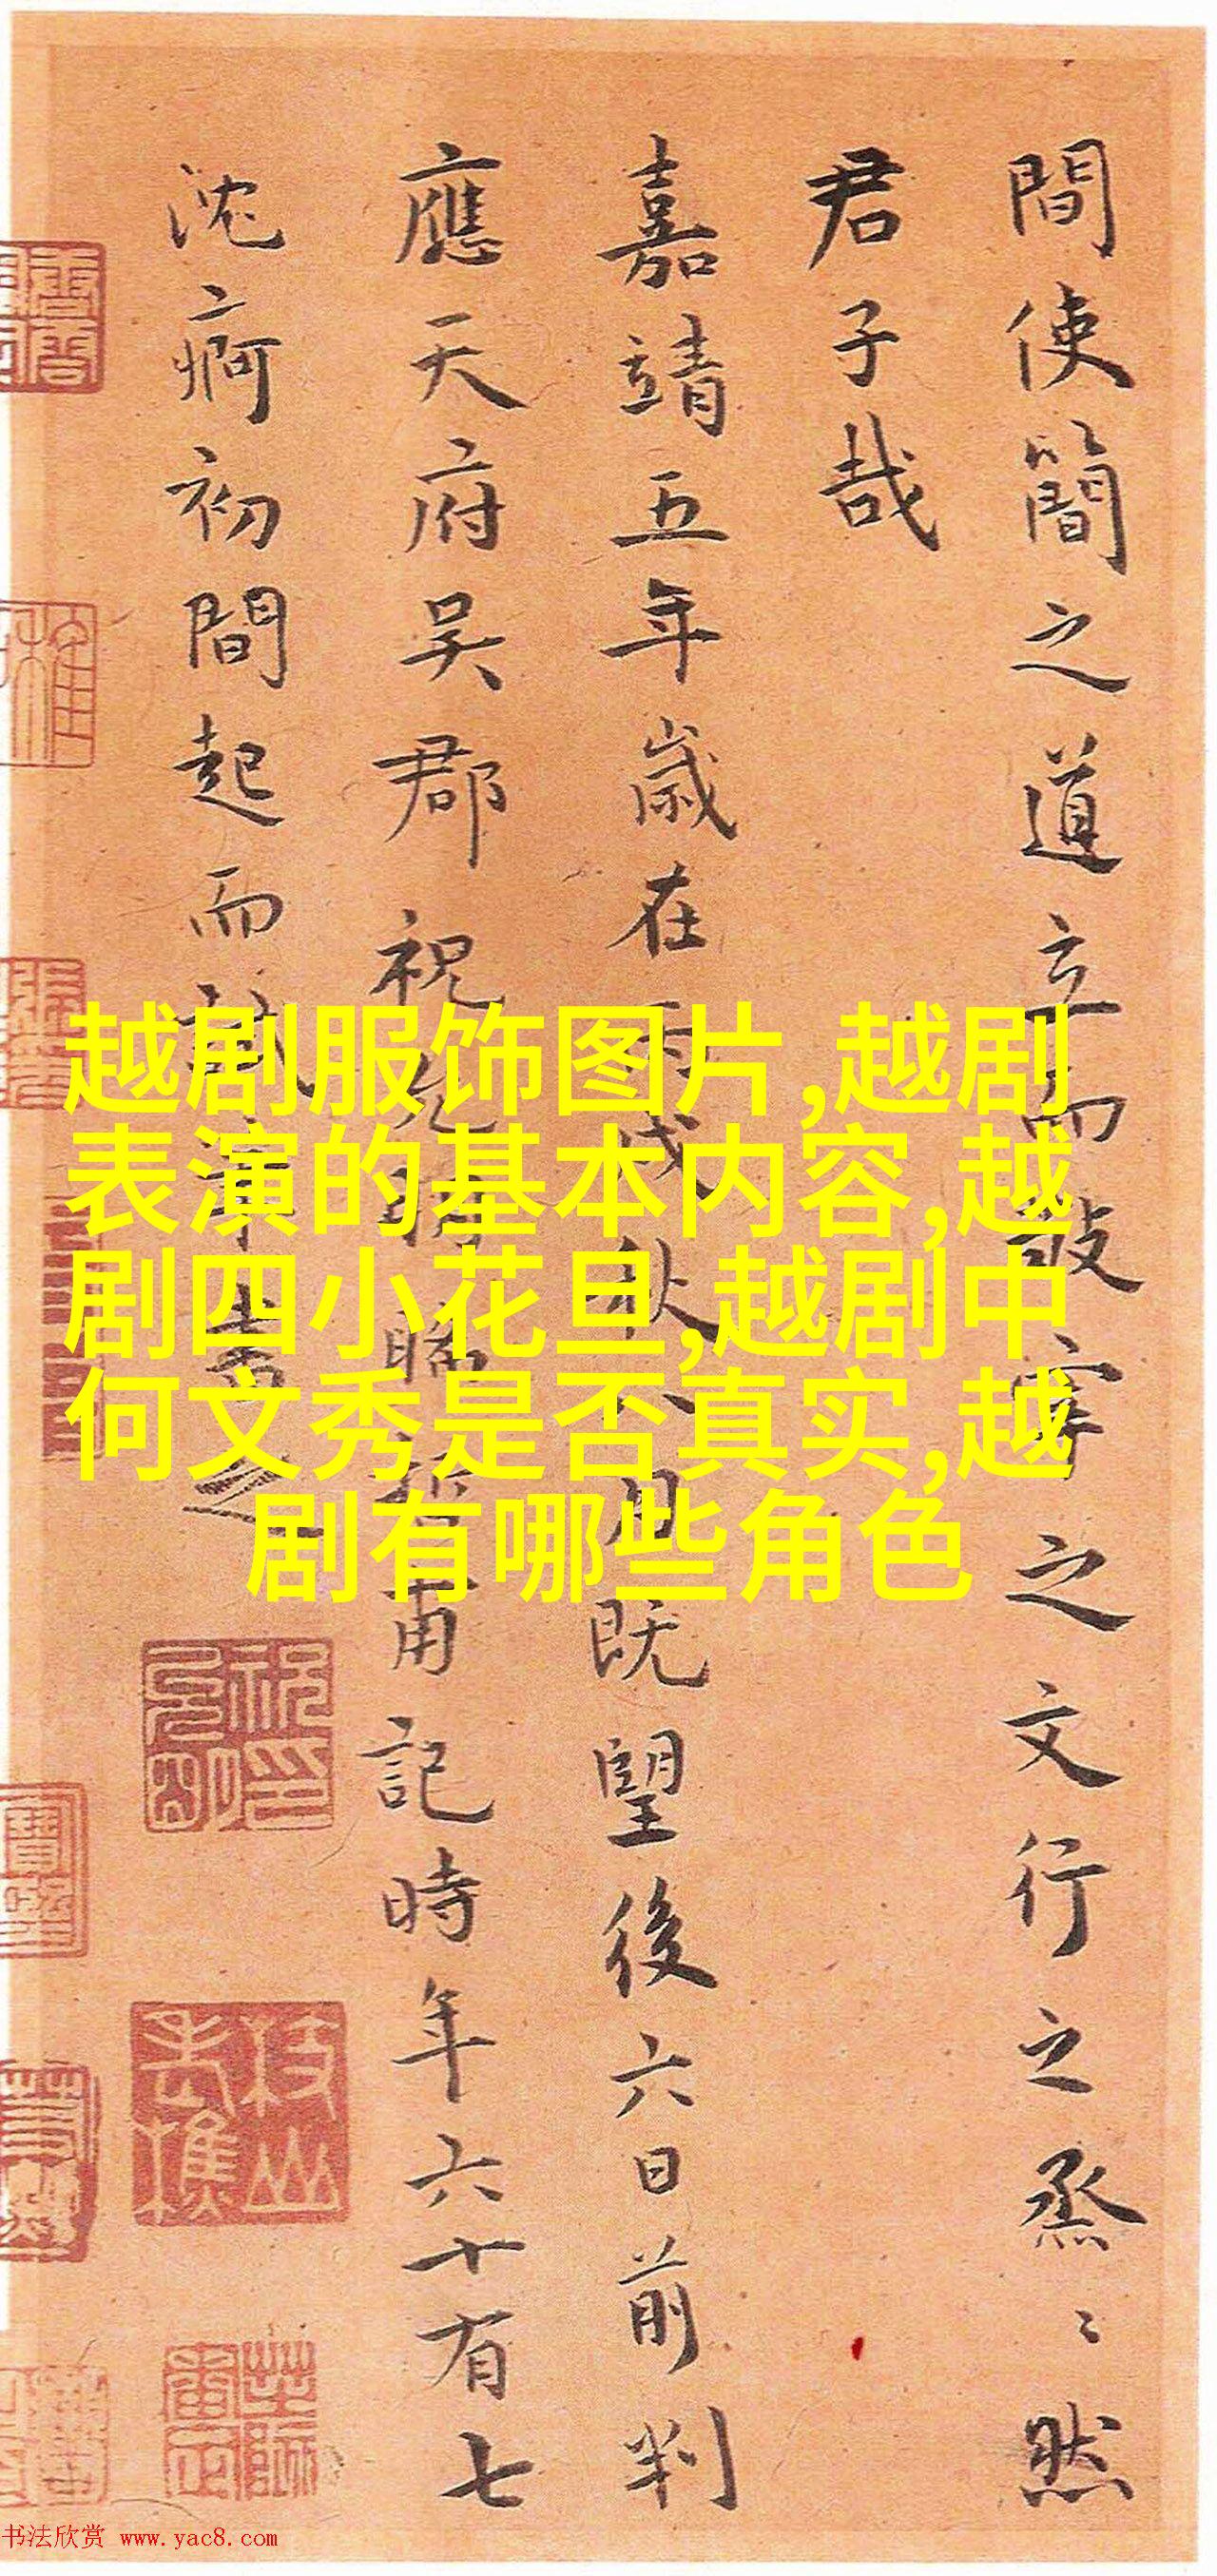 間使簡之道立而敬寧之文行之烝〻然
君子哉
嘉靖五年歲在丙戌秋八月既望後六日前判
應天府吳郡祝允明晞哲甫記時年六十有七
沈痾初間起而試筆書之
越剧服饰图片,越剧
表演的基本内容,越
剧四小花旦,越剧中
何文秀是否真实,越
剧有哪些角色
枝山老樵
书法欣赏 www.yac8.com